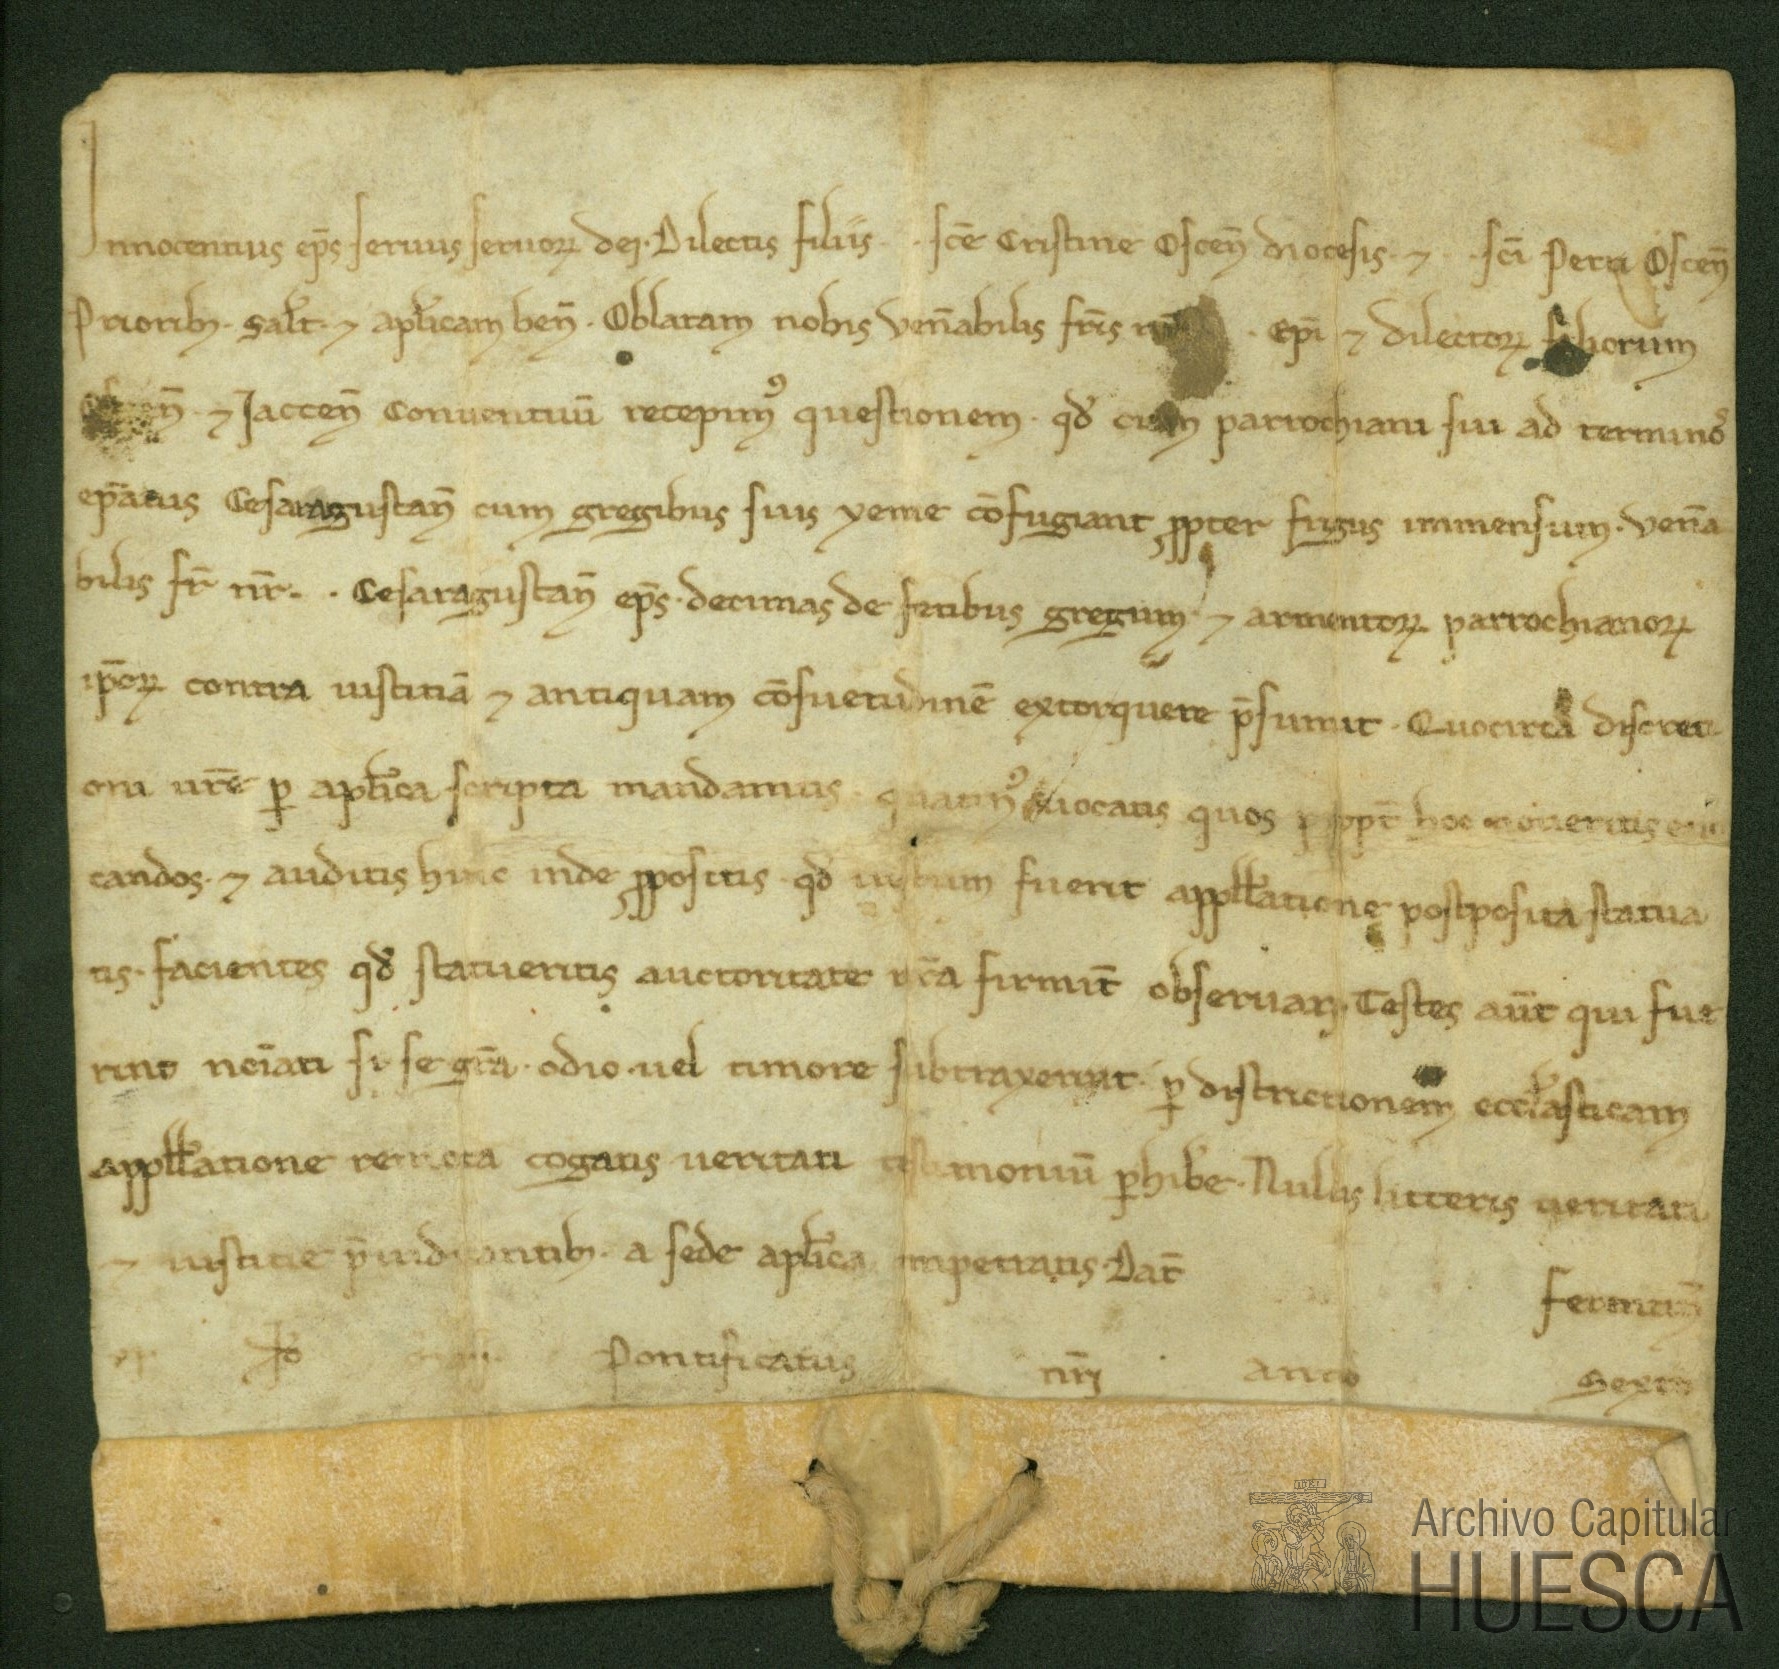 Innocentius ep̄s servus servoꝝ dei. Dilectis filiis . . sc̄e Cristine Oscen̄ diocesis. ⁊ . . sc̄i Petri Oscen̄
Priorib; salt̄. ⁊ apl̄icam ben̄. Oblatam nobis ven̄abilis fr̄is . . Ep̄i ⁊ dilectoꝝ filiorum
⁊ Jaccen̄ Conventuū recepim᷒ questionem. qd̄ cum parrochiani sui ad termino᷒
ep̄atus Cesaragustan̄ cum gregibus suis yeme cōfugiant ꝓpter frigus immensum. ven̄a
bilis fr̄ nr̄ . . Cesaragustan̄ ep̄s. decimas de fetibus gregum ⁊ armentoꝝ parrochianoꝝ
ip̄oꝝ contra iustitiā ⁊ antiquam cōsuetudinē extorquere p̄sumit. Quocirca discreti
oni vr̄e ꝑ apl̄ica scripta mandamus. quatin᷒ vocatis quos propt̄ hoc noveritis evo
candos. ⁊ auditis hinc inde ꝓpositis. qd̄ iustum fuerit appll̄atione postposita statua
tis. facientes qd̄ statueritis auctoritate nr̄a firmit̄ observari. Testes aūt qui fue
rint noīati si se gr̄a. odio. vel timore subtraxerint. ꝑ districtionem eccl̄asticam
appll̄atione remota cogatis veritati testimoniū ꝑhibe̅. Nullis litteris veritati
⁊ iustitie p̄iudicantib;. a sede apl̄ica impetratis. Dat̄
Ferentin̄
Pontificatus nr̄i Anno Sexto
Archivo Capitular
HUESCA